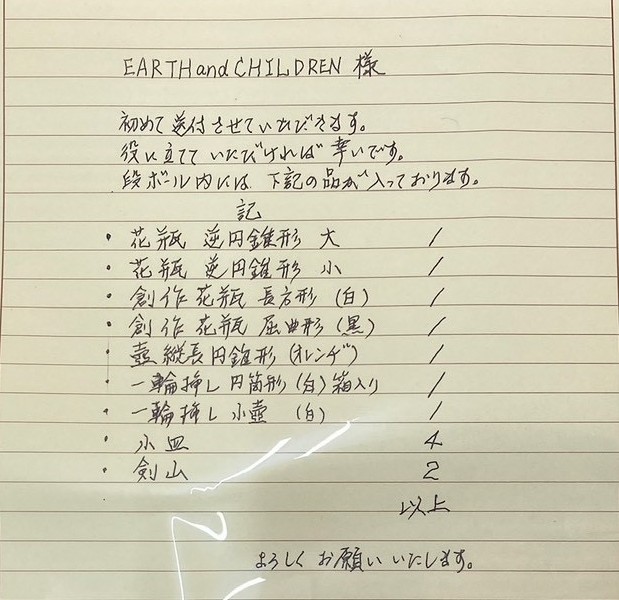 EARTHandCHILDREN 様
初めて送付させていただきます。
役に立てていただければ幸いです。
段ボール内には、下記の品が入っております。
記
・花瓶 逆円錐形 大 1
・花瓶 逆円錐形 小 1
・創作花瓶 長方形(白) 1
・創作花瓶 屈曲形(黒) 1
・壺縦長円錐形(オレンヂ) 1
・一輪挿し円筒形(白)箱入り 1
・一輪挿し小壺(白) 1
・小皿 4
・剣山 2
以上
よろしくお願いいたします。